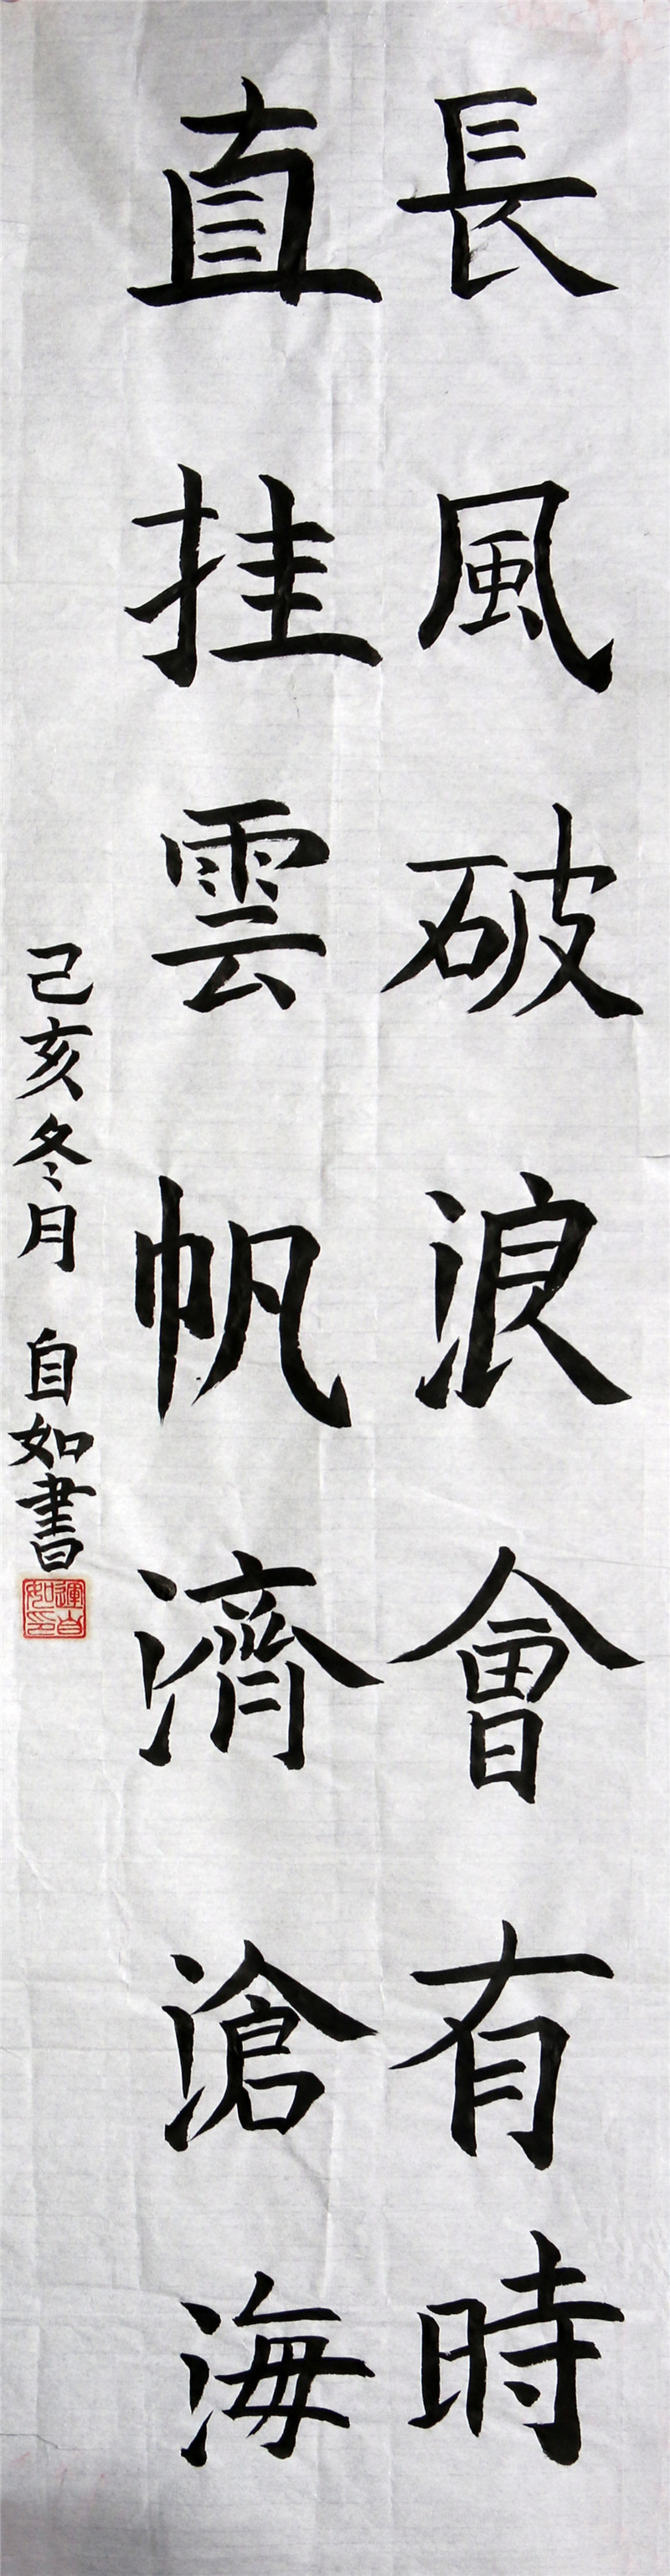 長風破浪會有時
直挂雲帆濟滄海
己亥冬月 自如書